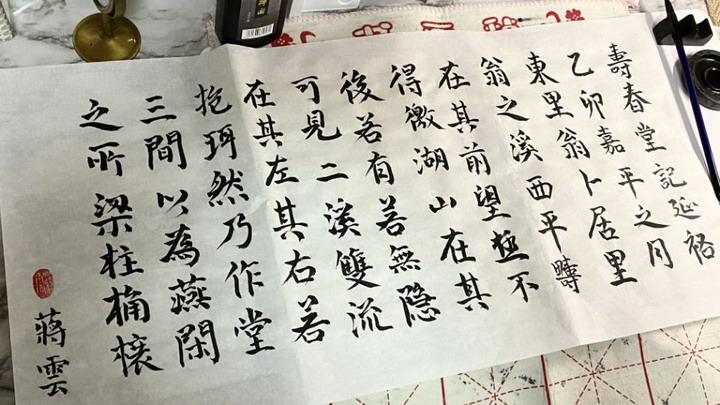 壽春堂記延祐
乙卯嘉平之月
東里翁卜居里
翁之溪西平疇
在其前望極不
得徼湖山在其
後若有若無隱
可見二溪雙流
在其左其右若
抱珥然乃作堂
三間以為燕閑
之所梁柱桷榱
蔣雲